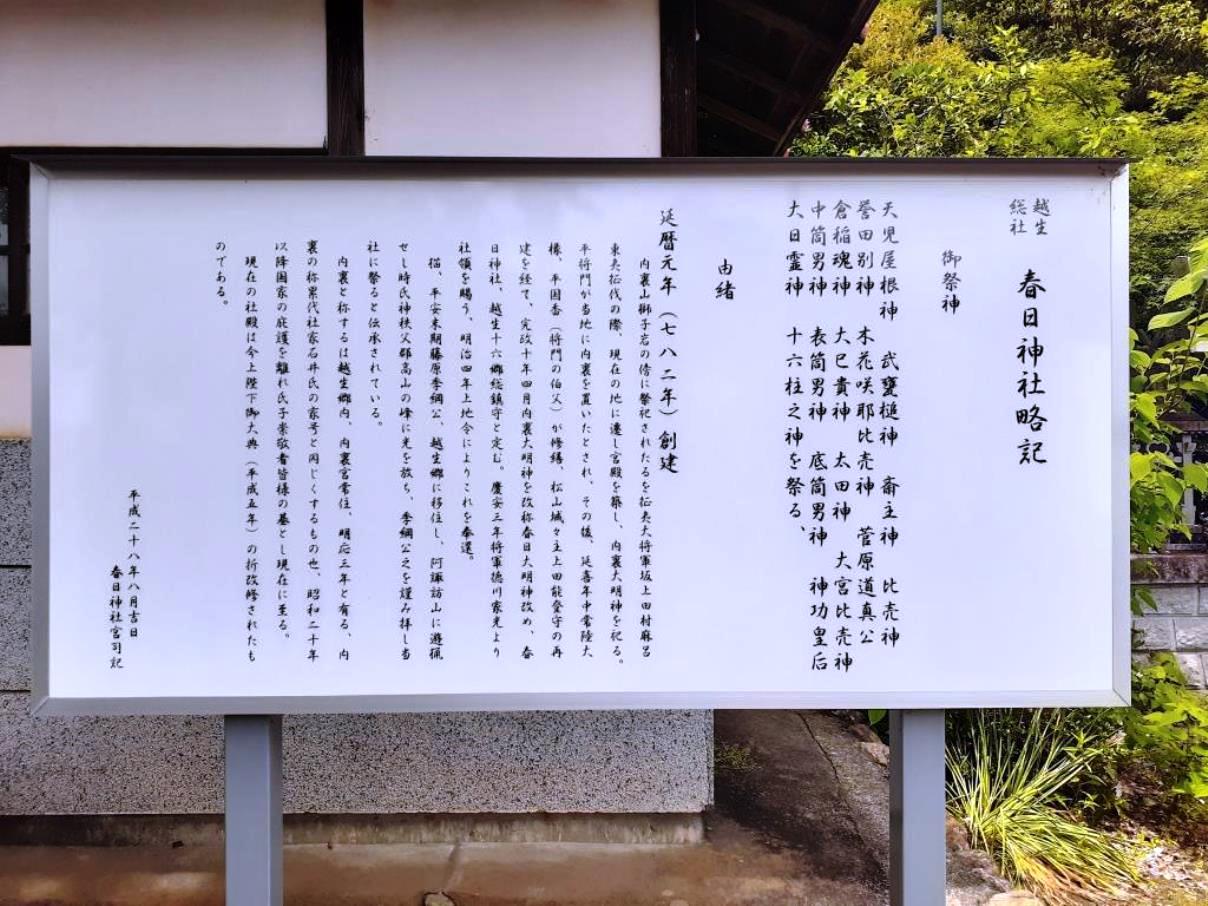 越生
総社
春日神社略記
御祭神
天児屋根神 武甕槌神 斎主神 比売神
誉田別神 木花咲耶比売神 菅原道真公
倉稲魂神 大巳貴神 太田神 大宮比売神
中筒男神 表筒男神 底筒男神 神功皇后
大日霊神 十六柱之神を祭る、
由緒
延暦元年(七八二年)創建
内裏山獅子岩の傍に祭祀されたるを征夷大将軍坂上田村麻呂
東夷征伐の際、現在の地に遷し宮殿を築し、内裏大明神を祀る。
平将門が当地に内裏を置いたとされ、その後、延喜年中常陸大
橡、平国香(将門の伯父)が修繕、松山城々主上田能登守の再
建を経て、寛政十年四月内裏大明神を改称春日大明神改め、春
日神社、越生十六郷総鎮守と定む。慶安三年将軍徳川家光より
社領を賜う、明治四年上地令によりこれを奉還。
猶、平安末期藤原季綱公、越生郷に移住し、阿諏訪山に遊猟
せし時氏神秩父郡高山の峰に光を放ち、季綱公之を謹み拝し当
社に祭ると伝承されている。
内裏と称するは越生郷内、内裏宮常住、明応三年と有る、内
裏の称累代社家石井氏の家号と同じくするもの也、昭和二十年
以降国家の庇護を離れ氏子崇敬者皆様の基とし現在に至る。
現在の社殿は今上陛下御大典(平成五年)の折改修されたも
のである。
平成二十八年八月吉日
春日神社宮司記